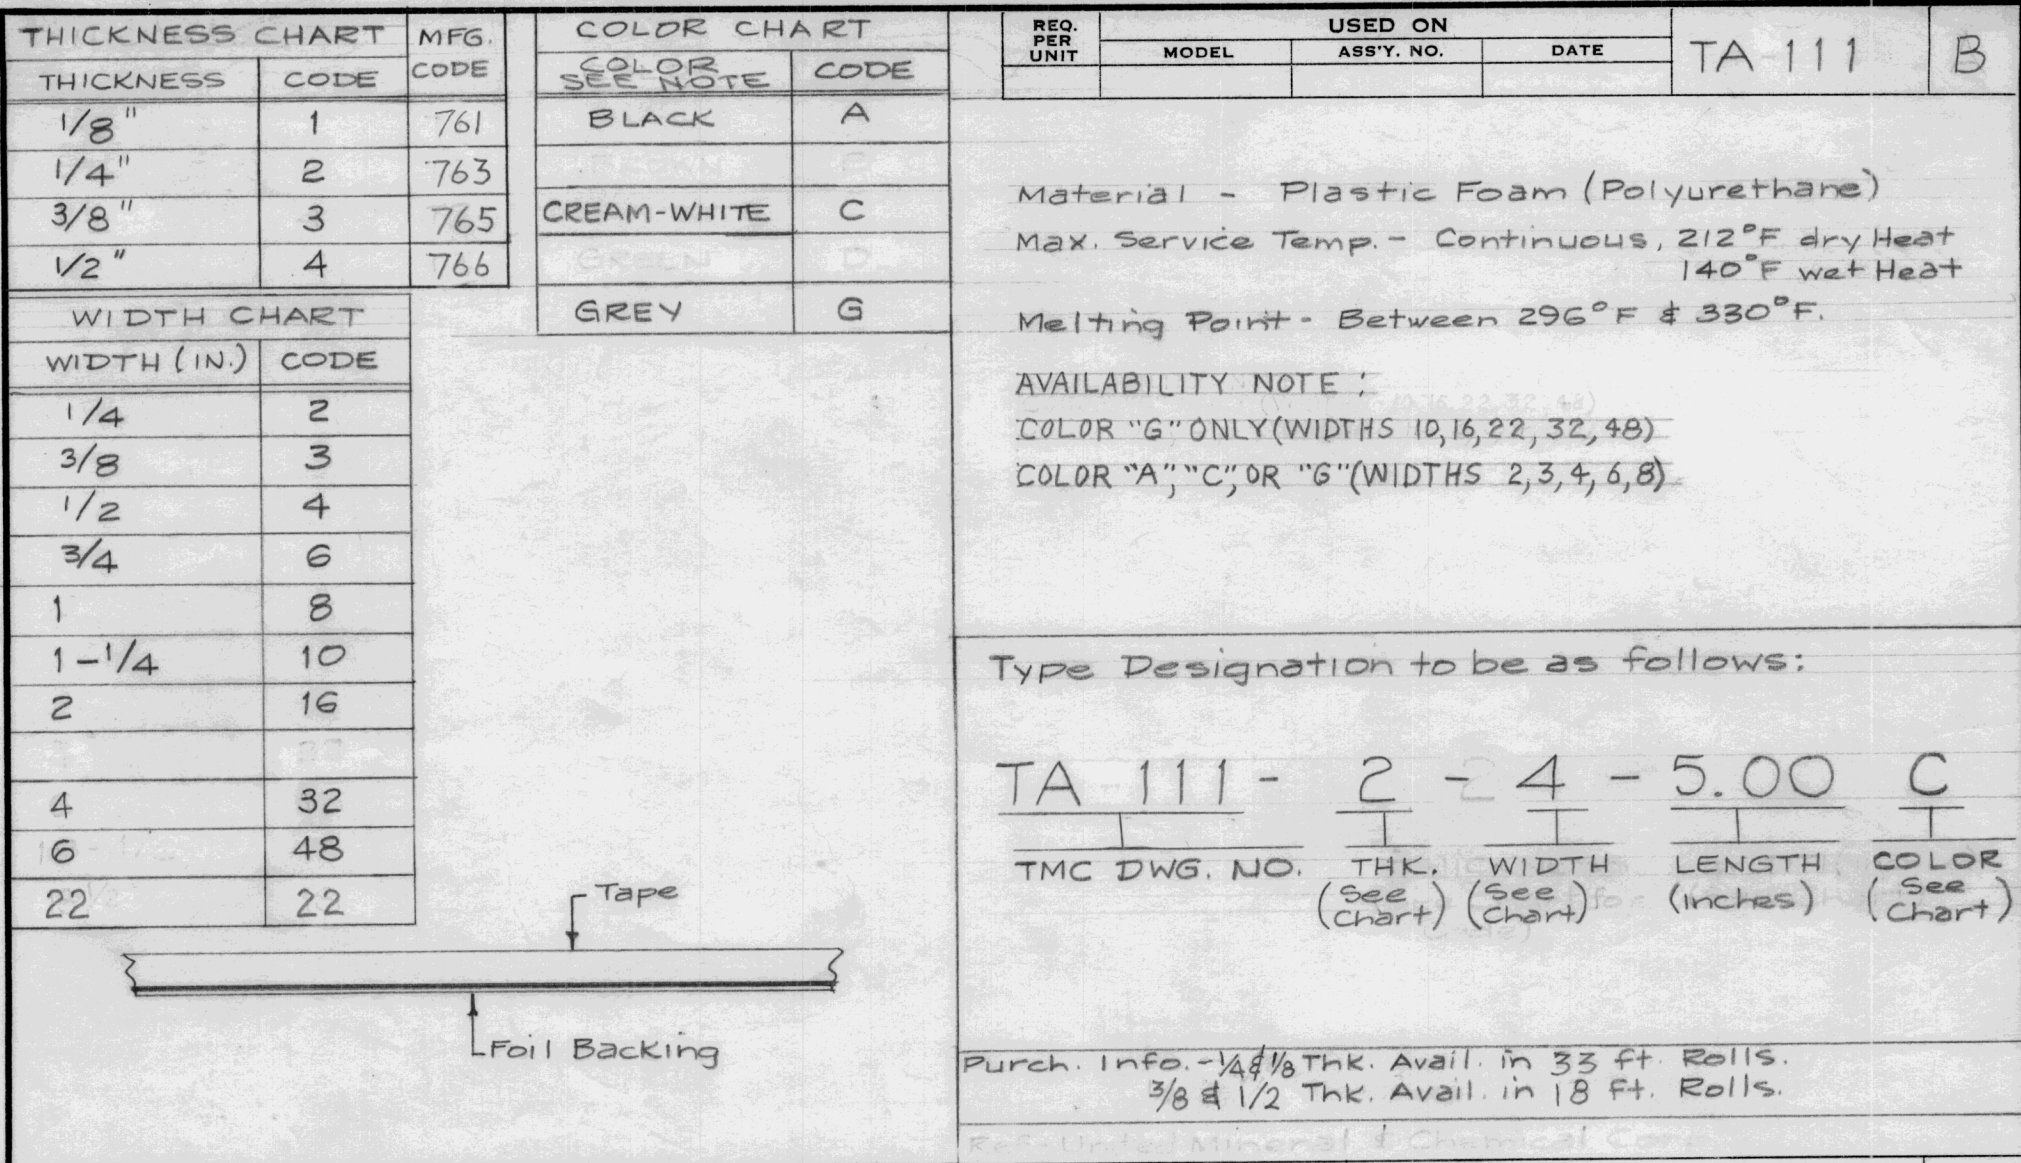 THICKNESS CHART MFG. CODE
THICKNESS CODE
1/8" 1 761
1/4" 2 763
3/8" 3 765
1/2" 4 766
WIDTH CHART
WIDTH (IN.) CODE
1/4 2
3/8 3
1/2 4
3/4 6
1 8
1-1/4 10
2 16
4 32
6 48
22 22
COLOR CHART
COLOR SEE NOTE CODE
BLACK A
CREAM-WHITE C
GREEN D
GREY G
Tape
Foil Backing
REQ. PER UNIT
USED ON
MODEL ASS'Y. NO. DATE
TA 111 B
Material - Plastic Foam (Polyurethane)
Max. Service Temp. - Continuous, 212°F dry Heat
140°F wet Heat
Melting Point - Between 296°F & 330°F.
AVAILABILITY NOTE :
COLOR "G" ONLY (WIDTHS 10,16,22,32,48)
COLOR "A", "C", OR "G" (WIDTHS 2,3,4,6,8)
Type Designation to be as follows:
TA 111 - 2 - 4 - 5.00 C
TMC DWG. NO. THK. WIDTH LENGTH COLOR
(See Chart) (See Chart) (inches) (See Chart)
Purch. Info. - 1/4 & 1/8 Thk. Avail. in 33 ft. Rolls.
3/8 & 1/2 Thk. Avail. in 18 ft. Rolls.
Ref - United Mineral & Chemical